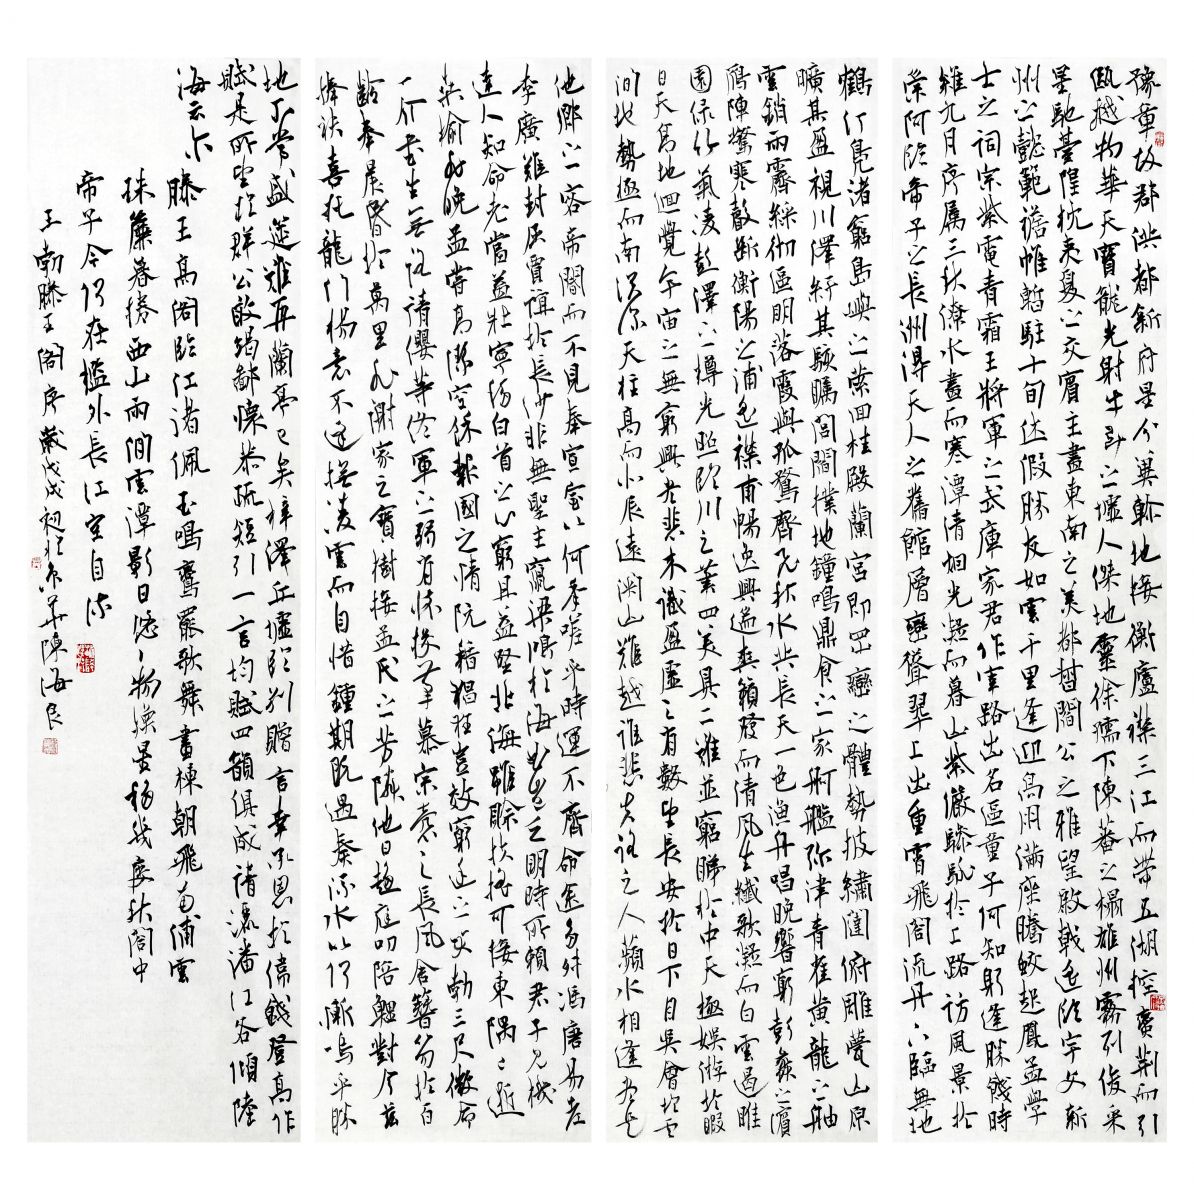 豫章故郡洪都新府星分翼軫地接衡廬襟三江而帶五湖控蠻荊而引
甌越物華天寶龍光射牛斗之墟人傑地靈徐孺下陳蕃之榻雄州霧列俊采
星馳臺隍枕夷夏之交賓主盡東南之美都督閻公之雅望棨戟遙臨宇文新
州之懿範襜帷暫駐十旬休假勝友如雲千里逢迎高朋滿座騰蛟起鳳孟學
士之詞宗紫電青霜王將軍之武庫家君作宰路出名區童子何知躬逢勝餞時
維九月序屬三秋潦水盡而寒潭清烟光凝而暮山紫儼驂騑於上路訪風景於
崇阿臨帝子之長洲得天人之舊館層巒聳翠上出重霄飛閣流丹下臨無地
鶴汀鳧渚窮島嶼之縈回桂殿蘭宮即岡巒之體勢披繡闥俯雕甍山原
曠其盈視川澤紆其駭矚閭閻撲地鐘鳴鼎食之家舸艦彌津青雀黃龍之舳
雲銷雨霽綵徹區明落霞與孤鶩齊飛秋水共長天一色漁舟唱晚響窮彭蠡之濱
鴈陣驚寒聲斷衡陽之浦遙襟甫暢逸興遄飛爽籟發而清風生纖歌凝而白雲遏睢
園綠竹氣凌彭澤之樽光照臨川之筆四美具二難並窮睇於中天極娛遊於暇
日天高地迥覺宇宙之無窮興盡悲來識盈虛之有數望長安於日下目吳會於雲
間地勢極而南溟深天柱高而北辰遠關山難越誰悲失路之人蘋水相逢盡是
他鄉之客帝閽而不見奉宣室以何年嗟乎時運不齊命途多舛馮唐易老
李廣難封屈賈誼於長沙非無聖主竄梁鴻於海曲豈乏明時所賴君子見機
達人知命老當益壯寧移白首之心窮且益堅
北海雖賒扶搖可接東隅已逝
桑榆非晚孟嘗高潔空餘報國之情阮籍猖狂豈效窮途之哭勃三尺微命
一介書生無路請纓等終軍之弱冠有懷投筆慕宗愨之長風舍簪笏於百
齡奉晨昏於萬里非謝家之寶樹接孟氏之芳鄰他日趨庭叨陪鯉對今茲
捧袂喜托龍門楊意不逢撫凌雲而自惜鍾期既遇奏流水以何慚嗚乎勝
地不常盛筵難再蘭亭已矣梓澤丘墟臨別贈言幸承恩於偉餞登高作
賦是所望於群公敢竭鄙懷恭疏短引一言均賦四韻俱成請灑潘江各傾陸
海云爾
滕王高閣臨江渚佩玉鳴鸞罷歌舞畫棟朝飛南浦雲
珠簾暮捲西山雨間雲潭影日悠悠物換星移幾度秋閣中
帝子今何在檻外長江空自流
王勃滕王閣序歲戊戌初於京華陳海良